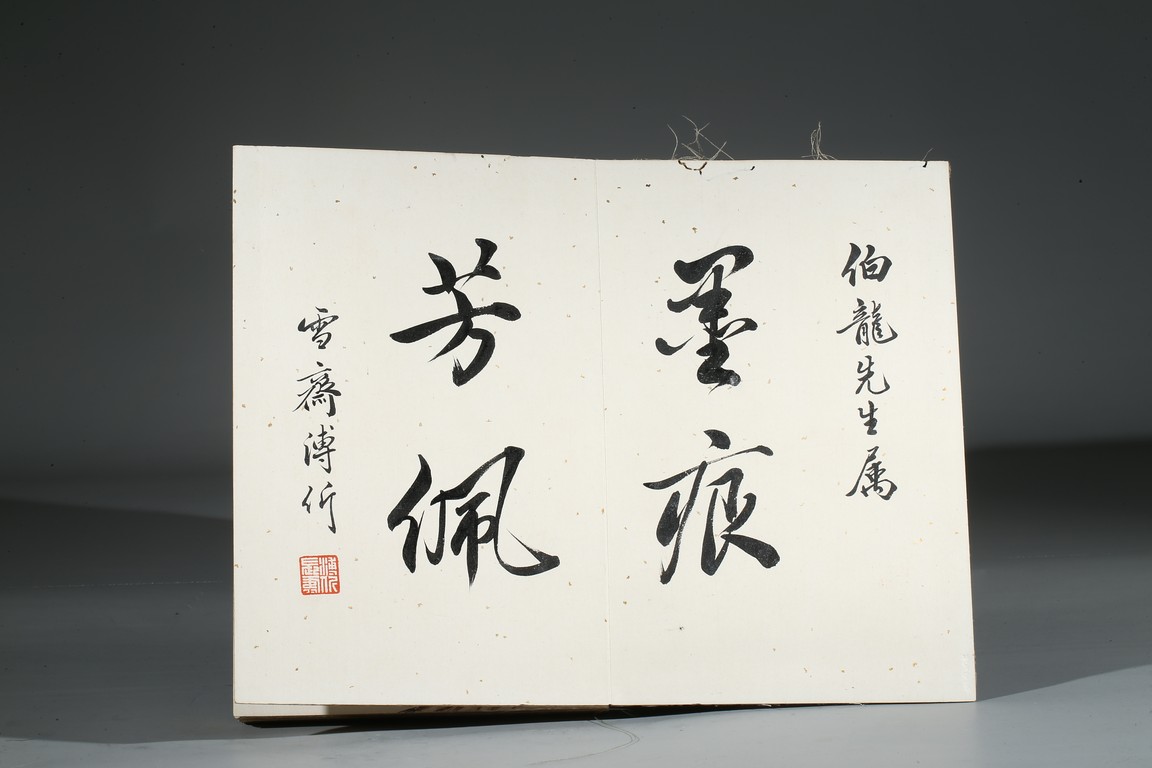 伯龍先生属
墨痕
芳佩
雪齋溥伒